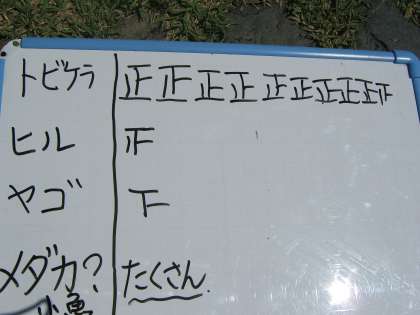 トビケラ 正正正正正正正正正正
ヒル 正
ヤゴ 下
メダカ? たくさん.
小魚